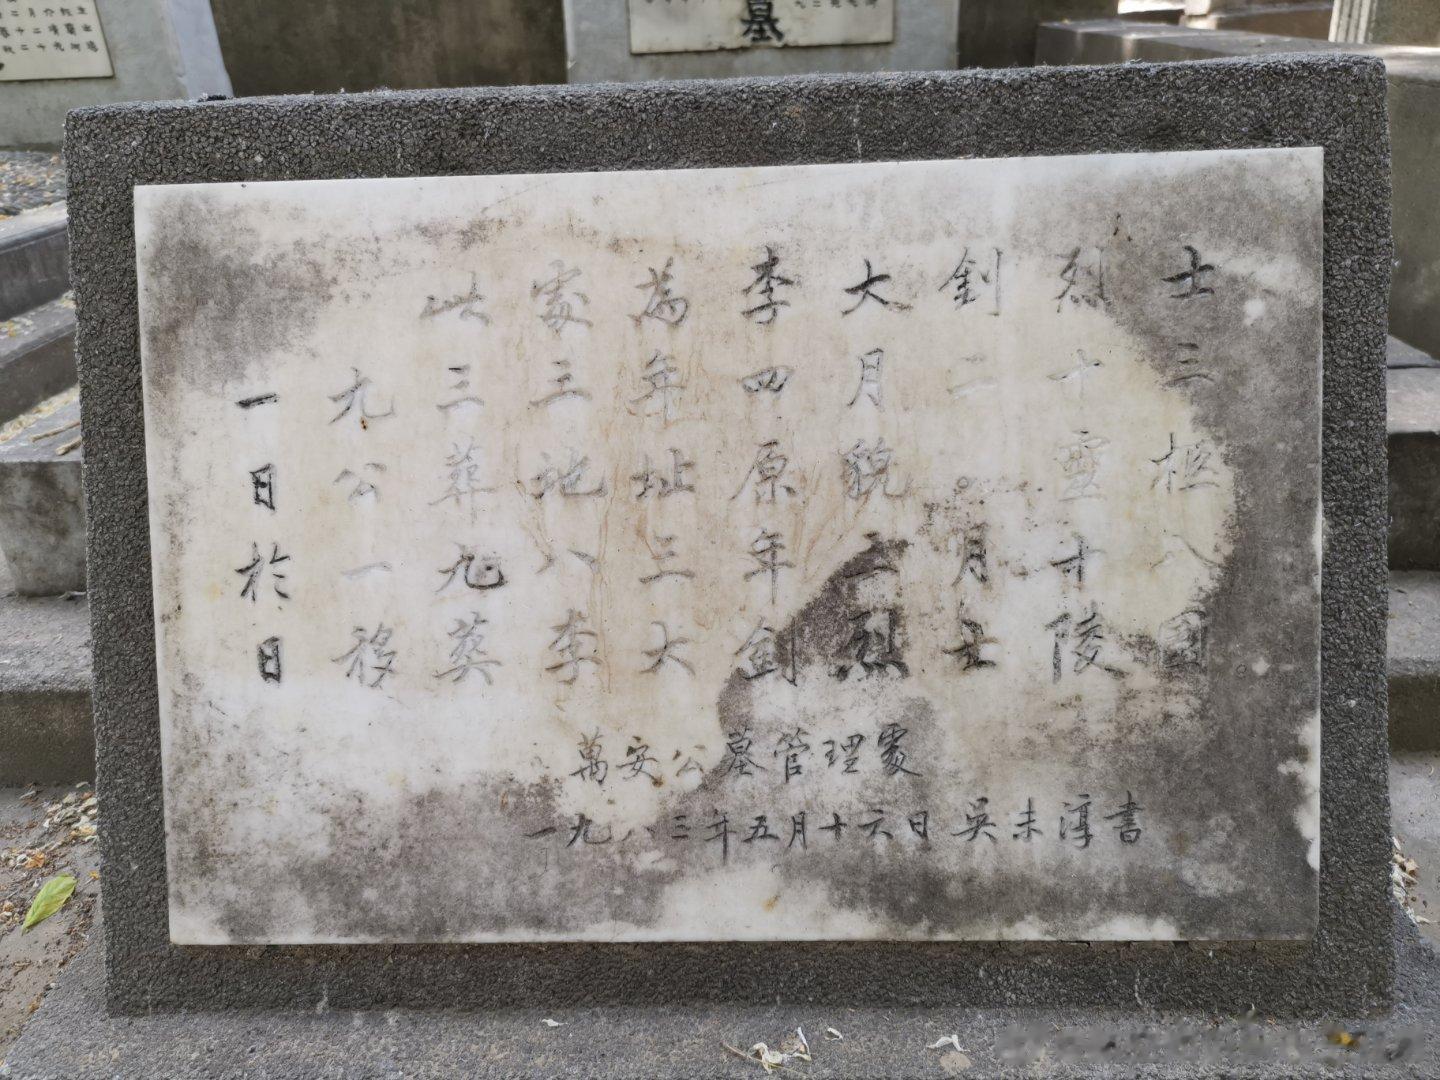 墓
此處為李大釗烈士
一九三三年四月二十三
日公葬地址原貌。靈柩
於一九八三年三月十八
日移葬李大釗烈士陵園
萬安公墓管理處
一九八三年五月十六日 吳未淳書